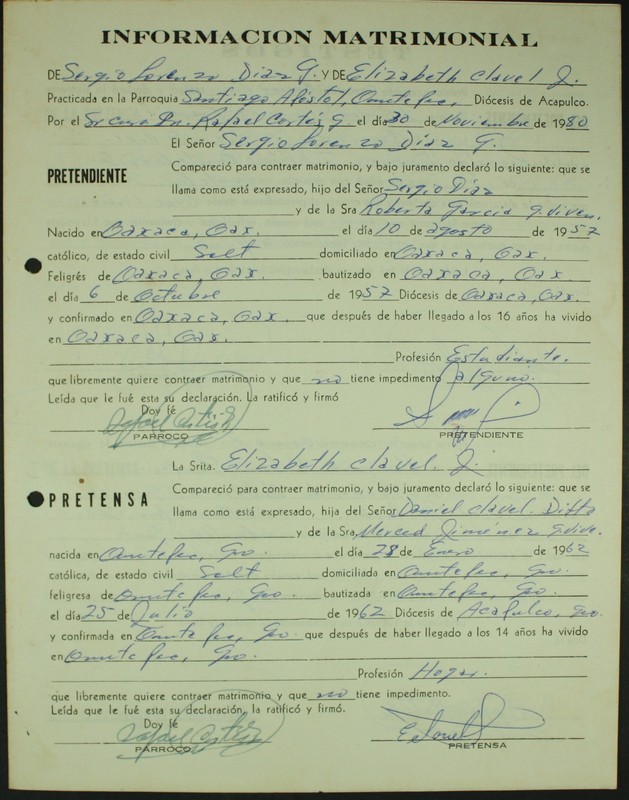 INFORMACION MATRIMONIAL
DE Sergio Lorenzo Diaz G. Y DE Elizabeth Clavel J.
Practicada en la Parroquia Santiago Apóstol, Ometepec, Diócesis de Acapulco.
Por el Sr cura Pr. Rafael Cortés G el día 30 de Noviembre de 1980
El Señor Sergio Lorenzo Díaz G.
PRETENDIENTE
Compareció para contraer matrimonio, y bajo juramento declaró lo siguiente: que se
llama como está expresado, hijo del Señor Sergio Díaz
y de la Sra Roberta Garcia q. viven.
Nacido en Oaxaca, Oax. el día 10 de agosto de 1957
católico, de estado civil Solt domiciliado en Oaxaca, Oax.
Feligrés de Oaxaca, Oax. bautizado en Oaxaca, Oax
el día 6 de Octubre de 1957 Diócesis de Oaxaca, Oax.
y confirmado en Oaxaca, Oax. que después de haber llegado a los 16 años ha vivido
en Oaxaca, Oax.
Profesión Estudiante.
que libremente quiere contraer matrimonio y que no tiene impedimento alguno.
Leída que le fué esta su declaración. La ratificó y firmó
Doy fé
Rafael Cortés G
PARROCO PRETENDIENTE
La Srita. Elizabeth Clavel. J.
PRETENSA
Compareció para contraer matrimonio, y bajo juramento declaró lo siguiente: que se
llama como está expresado, hija del Señor Daniel Clavel. Difto
y de la Sra, Merced Jiménez q. vive.
nacida en Ometepec, Gro. el día 28 de Enero de 1962
católica, de estado civil Solt domiciliada en Ometepec, Gro.
feligresa de Ometepec, Gro. bautizada en Ometepec, Gro.
el día 25 de Julio de 1962 Diócesis de Acapulco, Gro.
y confirmada en Ometepec, Gro. que después de haber llegado a los 14 años ha vivido
en Ometepec, Gro.
Profesión Hogar.
que libremente quiere contraer matrimonio y que no tiene impedimento.
Leída que le fué esta su declaración, la ratificó y firmó.
Doy fé
Rafael Cortés G
PARROCO PRETENSA